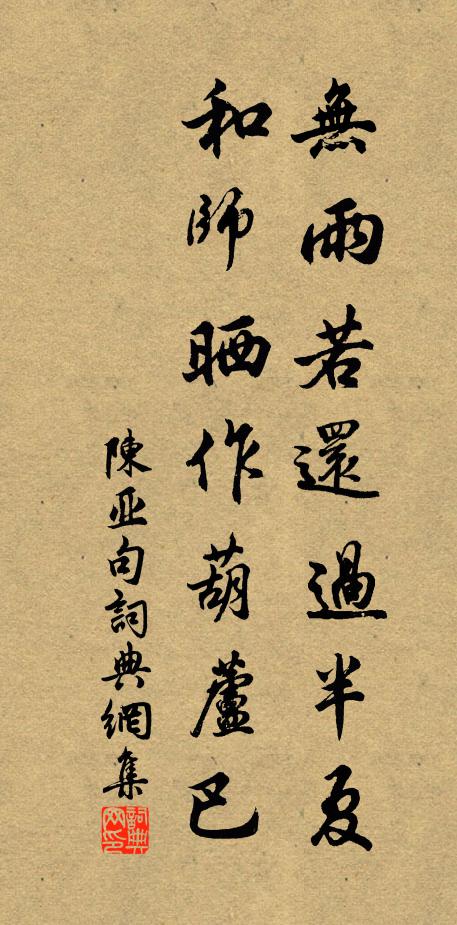 無雨若還過半夏
和師晒作葫蘆巴
陳亚句詞典網集
詞典网印